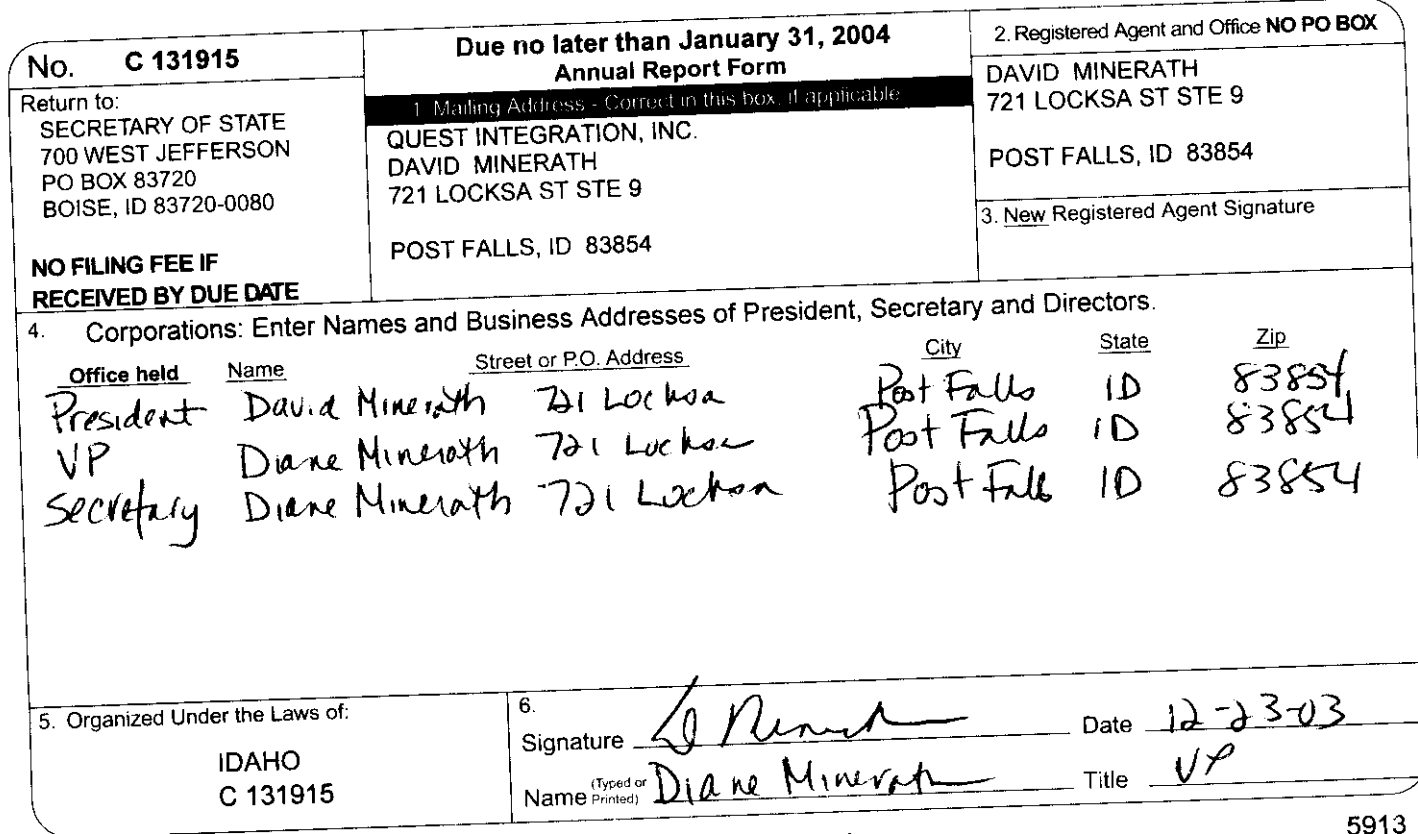 No. C 131915
Return to:
SECRETARY OF STATE
700 WEST JEFFERSON
PO BOX 83720
BOISE, ID 83720-0080
NO FILING FEE IF
RECEIVED BY DUE DATE
Due no later than January 31, 2004
Annual Report Form
1. Mailing Address - Correct in this box, if applicable
QUEST INTEGRATION, INC.
DAVID MINERATH
721 LOCKSA ST STE 9
POST FALLS, ID 83854
2. Registered Agent and Office NO PO BOX
DAVID MINERATH
721 LOCKSA ST STE 9
POST FALLS, ID 83854
3. New Registered Agent Signature
4. Corporations: Enter Names and Business Addresses of President, Secretary and Directors.
Office held Name Street or P.O. Address City State Zip
President David Minerath 721 Lochsa Post Falls ID 83854
VP Diane Minerath 721 Lochsa Post Falls ID 83854
Secretary Diane Minerath 721 Lochsa Post Falls ID 83854
5. Organized Under the Laws of:
IDAHO
C 131915
6.
Signature Date 12-23-03
Name (Typed or Printed) Diane Minerath Title VP
5913